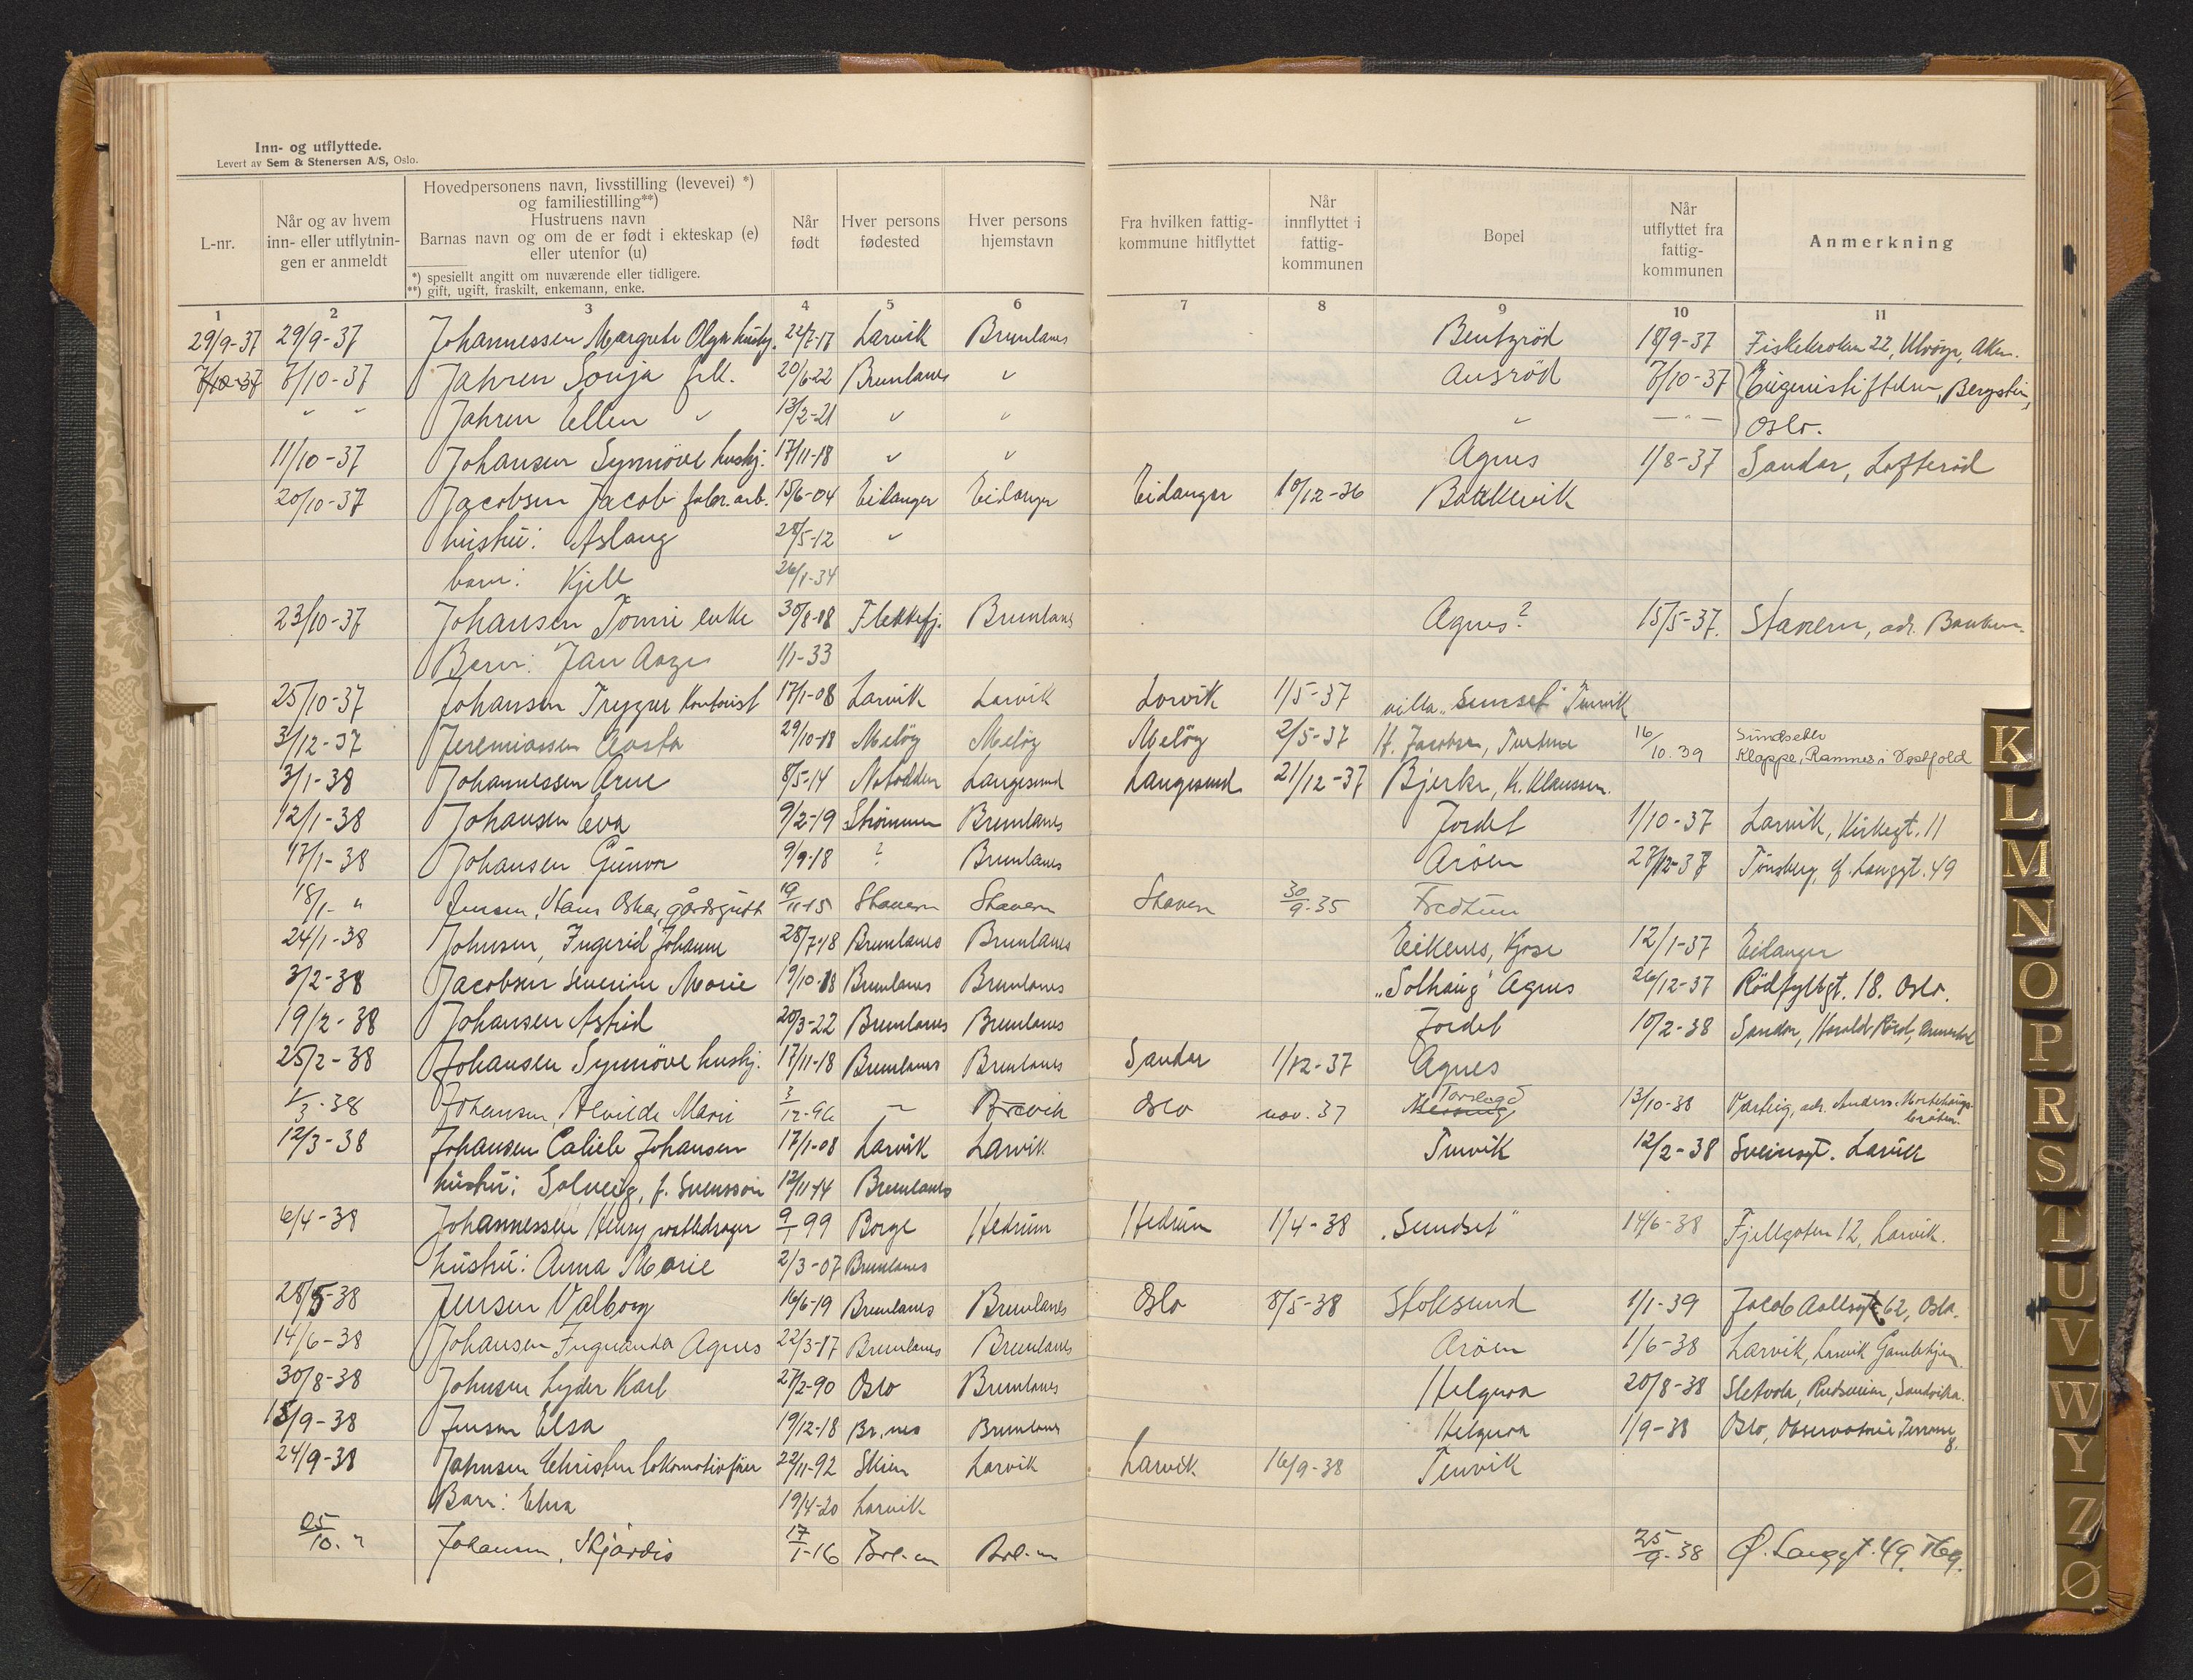 Inn- og utflyttede.
Levert av Sem & Stenersen A/S, Oslo.
L-nr.
Når og av hvem inn- eller utflytnin-gen er anmeldt
Hovedpersonens navn, livsstilling (levevei) *)
og familiestilling**)
Hustruens navn
Barnas navn og om de er født i ekteskap (e)
eller utenfor (u)
*) spesiellt angitt om nuværende eller tidligere.
**) gift, ugift, fraskilt, enkemann, enke.
Når født
Hver persons fødested
Hver persons hjemstavn
Fra hvilken fattig-kommune hitflyttet
Når innflyttet i fattig-kommunen
Bopel
Når utflyttet fra fattig-kommunen
Anmerkning
1 2 3 4 5 6 7 8 9 10 11
29/9-37 29/9-37 Johannessen Margrete Olga 22/7-17 Larvik Brunlanes Bentzrød 18/9-37 Fiskekroken 22, Ulvøya, Aker.
7/10-37 7/10-37 Jahren Sonja frk. 20/6-22 Brunlanes " Ausrød 7/10-37 Eugeniestiftelsen, Bergstien,
" " Jahren Ellen " 13/2-21 " " " - " - Oslo.
11/10-37 Johansen Synnöve hushj. 17/11-18 " " Agnes 1/8-37 Sandar, Lofterød
20/10-37 Jacobsen Jacob fabr. arb. 15/6-04 Eidanger Eidanger Eidanger 10/12-36
hustru: Aslaug 28/5-12 "
barn: Kjell 26/1-34
23/10-37 Johansen enke 30/8-08 Flekkefj. Brunlanes Agnes? 15/5-37. Stavern, adr.
Barn: Jan Aage 1/1-33
25/10-37 Johansen Trygve kontorist 17/1-08 Larvik Larvik Larvik 1/5-37 villa "Sunset" Tenvik
3/12-37 Jeremiassen Aasta 29/10-18 Meløy Meløy Meløy 2/5-37 H. Jacobsen, 16/10.39 Sundsette
Kloppe, Ramnes i Vestfold
3/1-38 Johannessen Arne 8/5-14 Notodden Langesund Langesund 21/12-37 Bjerke, K. Klaussen.
12/1-38 Johansen Eva 9/2-19 Strömmen Brunlanes Jordet 1/10-37 Larvik, Kirkegt. 11
17/1-38 Johansen Gunvor 9/9-18 ? Brunlanes Aröen 27/12-37 Tönsberg, Ø. Langgt. 49
18/1- " Jensen, Hans Oskar, gårdsgutt 19/11-15 Stavern Stavern Stavern 30/9-35 Fredtun
24/1-38 Johnsen, Ingerid Johanne 28/7-18 Brunlanes Brunlanes Eikenes, Kjose 12/1-37 Eidanger
3/2-38 Jacobsen Severine Marie 19/10-18 Brunlanes Brunlanes "Solhaug" Agnes 26/12-37 Rödfyllgt. 18. Oslo.
19/2-38 Johansen Astrid 20/3-22 Brunlanes Brunlanes Jordet 10/2-38 Sandar, Harald
25/2-38 Johansen Synnöve hushj. 17/11-18 Brunlanes Brunlanes Sandar 1/12-37 Agnes
1/3-38 Johansen, Alvilde Marie 3/12-96 - Brevik Oslo nov. 37 Torslagd 13/10-38 Varteig, adr. Anders
12/3-38 Johansen Johansen 17/1-08 Larvik Larvik Tenvik 12/2-38 Sveinsgt. Larvik
hustru: Solveig, f. Svensson 12/11-14 Brunlanes
6/4-38 Johannessen Henry postbedrager 9/1 99 Borge Hedrum Hedrum 1/4-38 "Sundset" 14/6-38 Fjellgaten 12, Larvik.
hustru: Anna Marie 2/3-07 Brunlanes
28/5-38 Jensen Valborg 16/6-19 Brunlanes Brunlanes Oslo 8/5-38 Stoksund 1/1-39 Jacob Aallsgt 62, Oslo.
14/6-38 Johansen Agnes 22/3-17 Brunlanes Brunlanes Aröen 1/6-38 Larvik, Larvik Gamlehjem.
30/8-38 Johnsen Lyder Karl 27/2-90 Oslo Brunlanes Helgeroa 20/8-38 Sandvika.
15/9-38 Jensen Elsa 19/12-18 Br.nes Brunlanes Helgeroa 1/9-38 Oslo, Observatorie Terrasse 8.
24/9-38 Johnsen Christen lokomotivfører 22/11-92 Skien Larvik Larvik 16/9-38 Tenvik
Barn: Elna 19/4-20 Larvik
05/10. " Johansen, Hjördis 17/1-16 Brl-es Brl-es 25/9-38 Ø. Langgt. 49. Tbg.
K
L
M
N
O
P
R
S
T
U
V
W
Y
Z
Ø